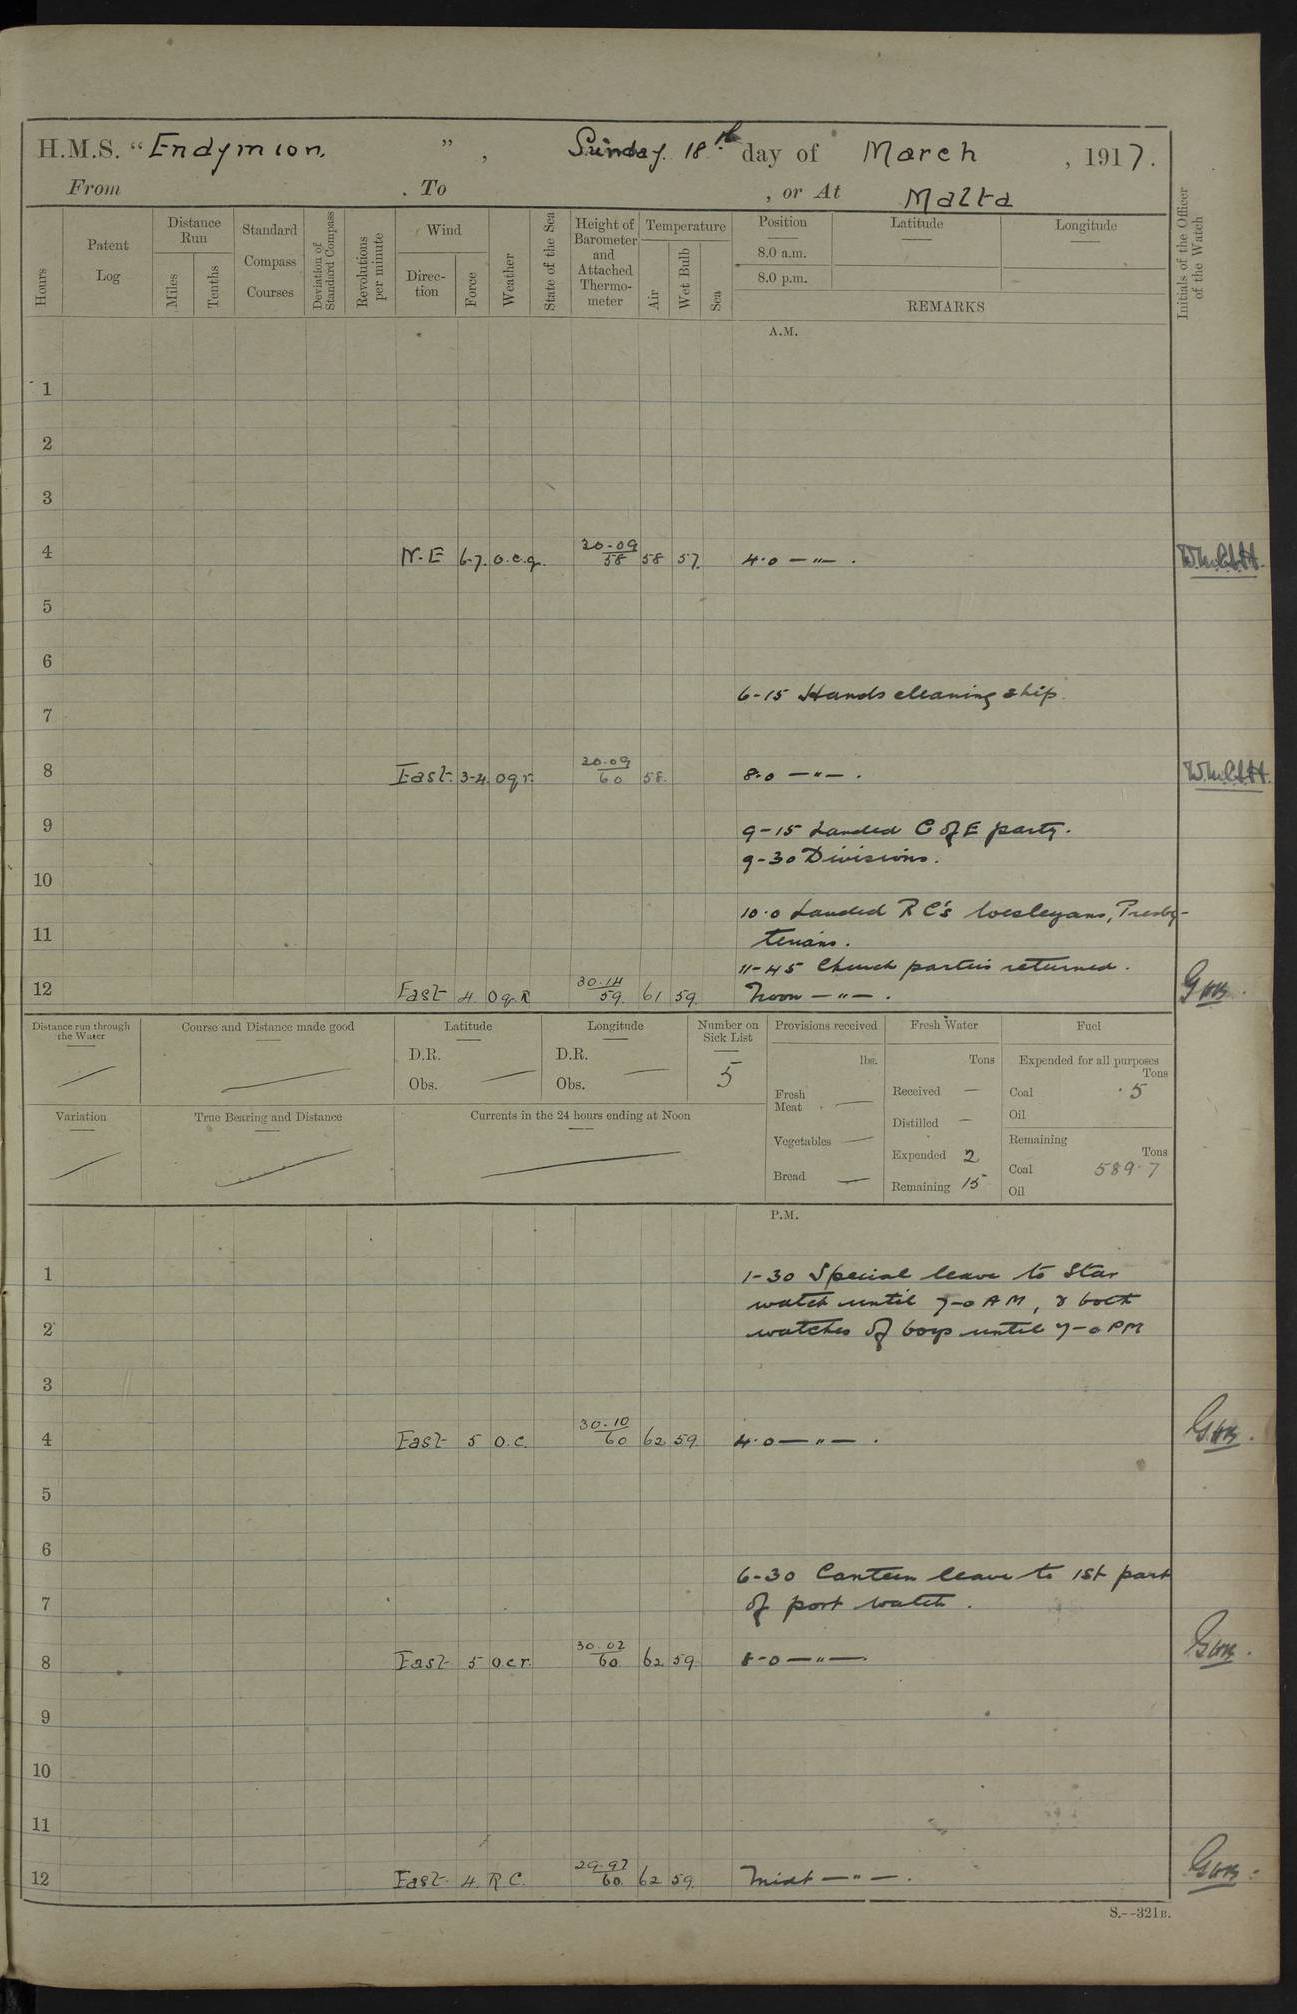 H.M.S. "Endymion. ", Sunday 18th day of March, 1917.
From . To , or At Malta
Hours
Patent Log
Distance Run
Miles
Tenths
Standard Compass Courses
Deviation of Standard Compass
Revolutions per minute
Wind
Direc-tion
Force
Weather
State of the Sea
Height of Barometer and Attached Thermo-meter
Temperature
Air
Wet Bulb
Sea
Position
8.0 a.m.
8.0 p.m.
Latitude
Longitude
REMARKS
Initials of the Officer of the Watch
A.M.
1
2
3
4 N.E 6-7. o.c.q. 30.09 58 58 57. 4.0 — " — .
5
6
6-15 Hands cleaning ship.
7
8 East. 3-4. oqr. 30.09 60 58. 8.0 — " — .
9 9-15 Landed C of E party.
9-30 Divisions.
10
10.0 Landed RC's Wesleyans, Presby-
11 terians.
11-45 Church parties returned.
12 East 4 OqR 30.14 59. 61 59. Noon — " — .
Distance run through the Water
Course and Distance made good
Latitude
D.R.
Obs.
Longitude
D.R.
Obs.
Number on Sick List
5
Provisions received
lbs.
Fresh Meat —
Vegetables —
Bread —
Fresh Water
Tons
Received —
Distilled —
Expended 2
Remaining 15
Fuel
Expended for all purposes
Tons
Coal .5
Oil
Remaining
Tons
Coal 589.7
Oil
Variation
True Bearing and Distance
Currents in the 24 hours ending at Noon
P.M.
1 1-30 Special leave to Star
watch until 7-0 AM, & both
2 watches of boys until 7-0 PM
3
4 East 5 o.c. 30.10 60 62 59 4.0 — " — .
5
6
6-30 Canteen leave to 1st part
7 of port watch.
8 East 5 ocr. 30.02 60. 62 59 8-0 — " — .
9
10
11
12 East. 4. R C. 29.97 60. 62 59. Midt — " — .
S.--321B.